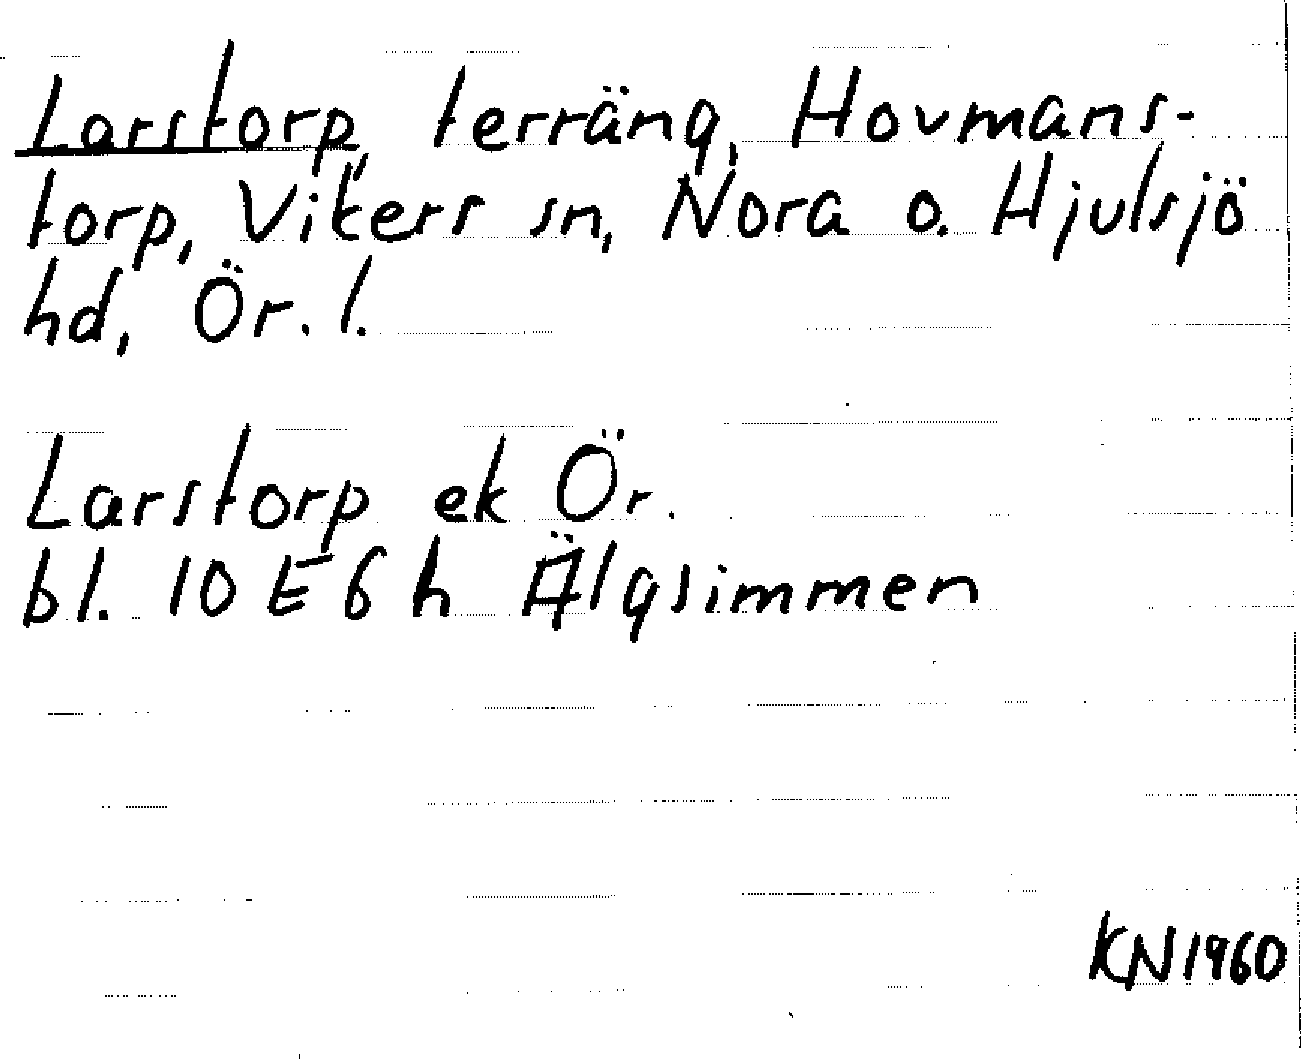 Larstorp, terräng, Hovmans-
torp, Vikers sn, Nora o. Hjulsjö
hd, Ör. l.
Larstorp ek Ör.
bl. 10 E 6 h Älgsimmen
KN 1960